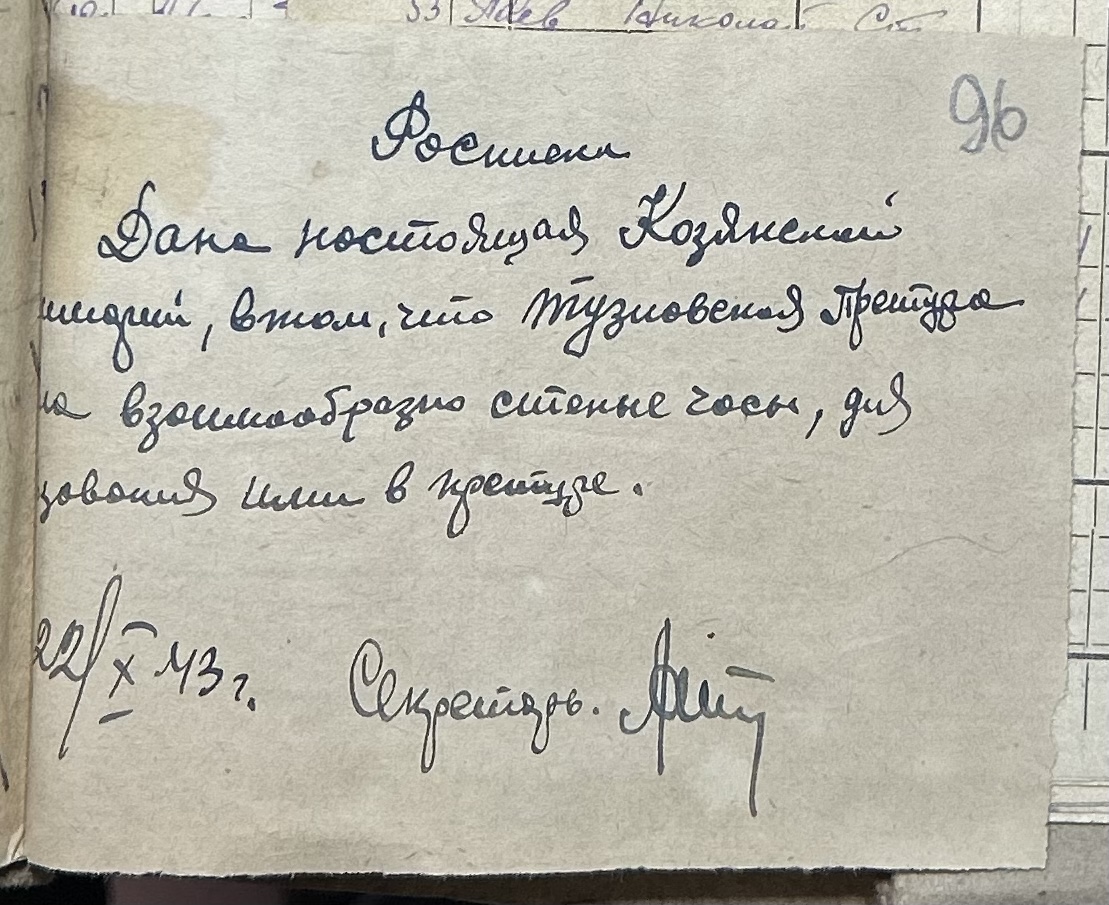 33 Николай Ст
96
Росписка
Дана настоящая Козянской
, в том, что Тузловская Претура
на взаимообразно стеные часы, для
зования ими в претуре.
22/X 43 г. Секретарь.